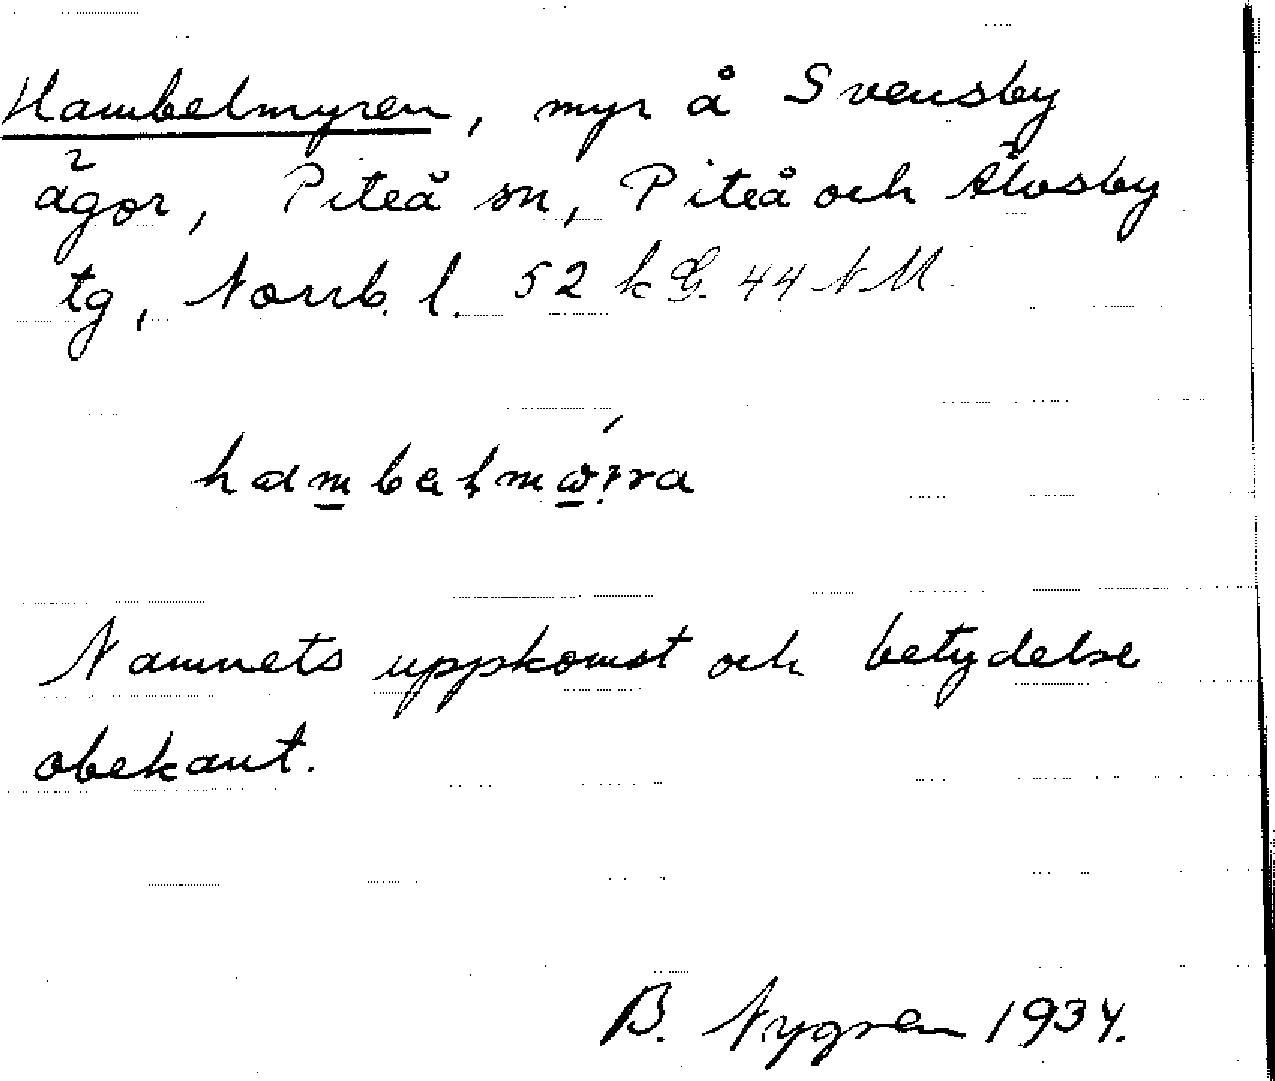 Hambelmyren, myr å Svensby
ägor, Piteå sn, Piteå och Älvsby
tg, Norrb. l. 52 k G. 44 N M
Namnets uppkomst och betydelse
obekant.
B. Nygren 1934.